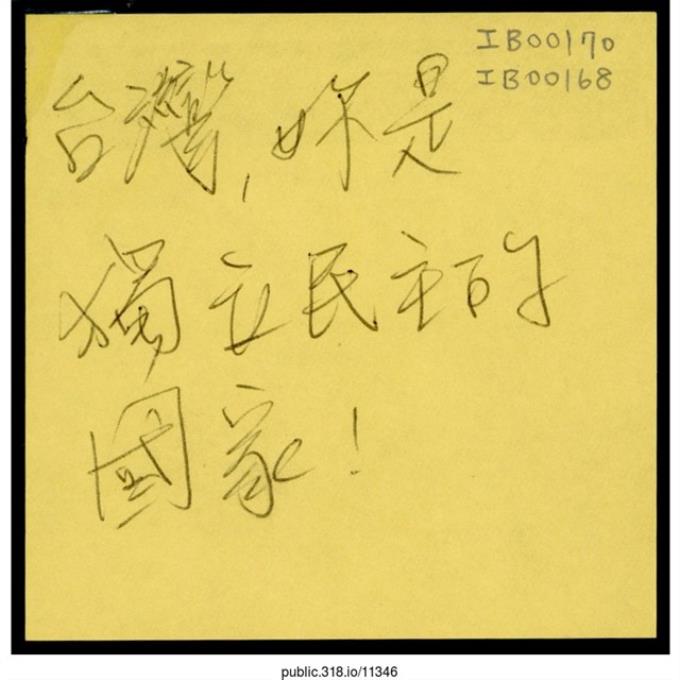 IB00170
IB00168
台灣,妳是
獨立民主的
國家!
public.318.io/11346